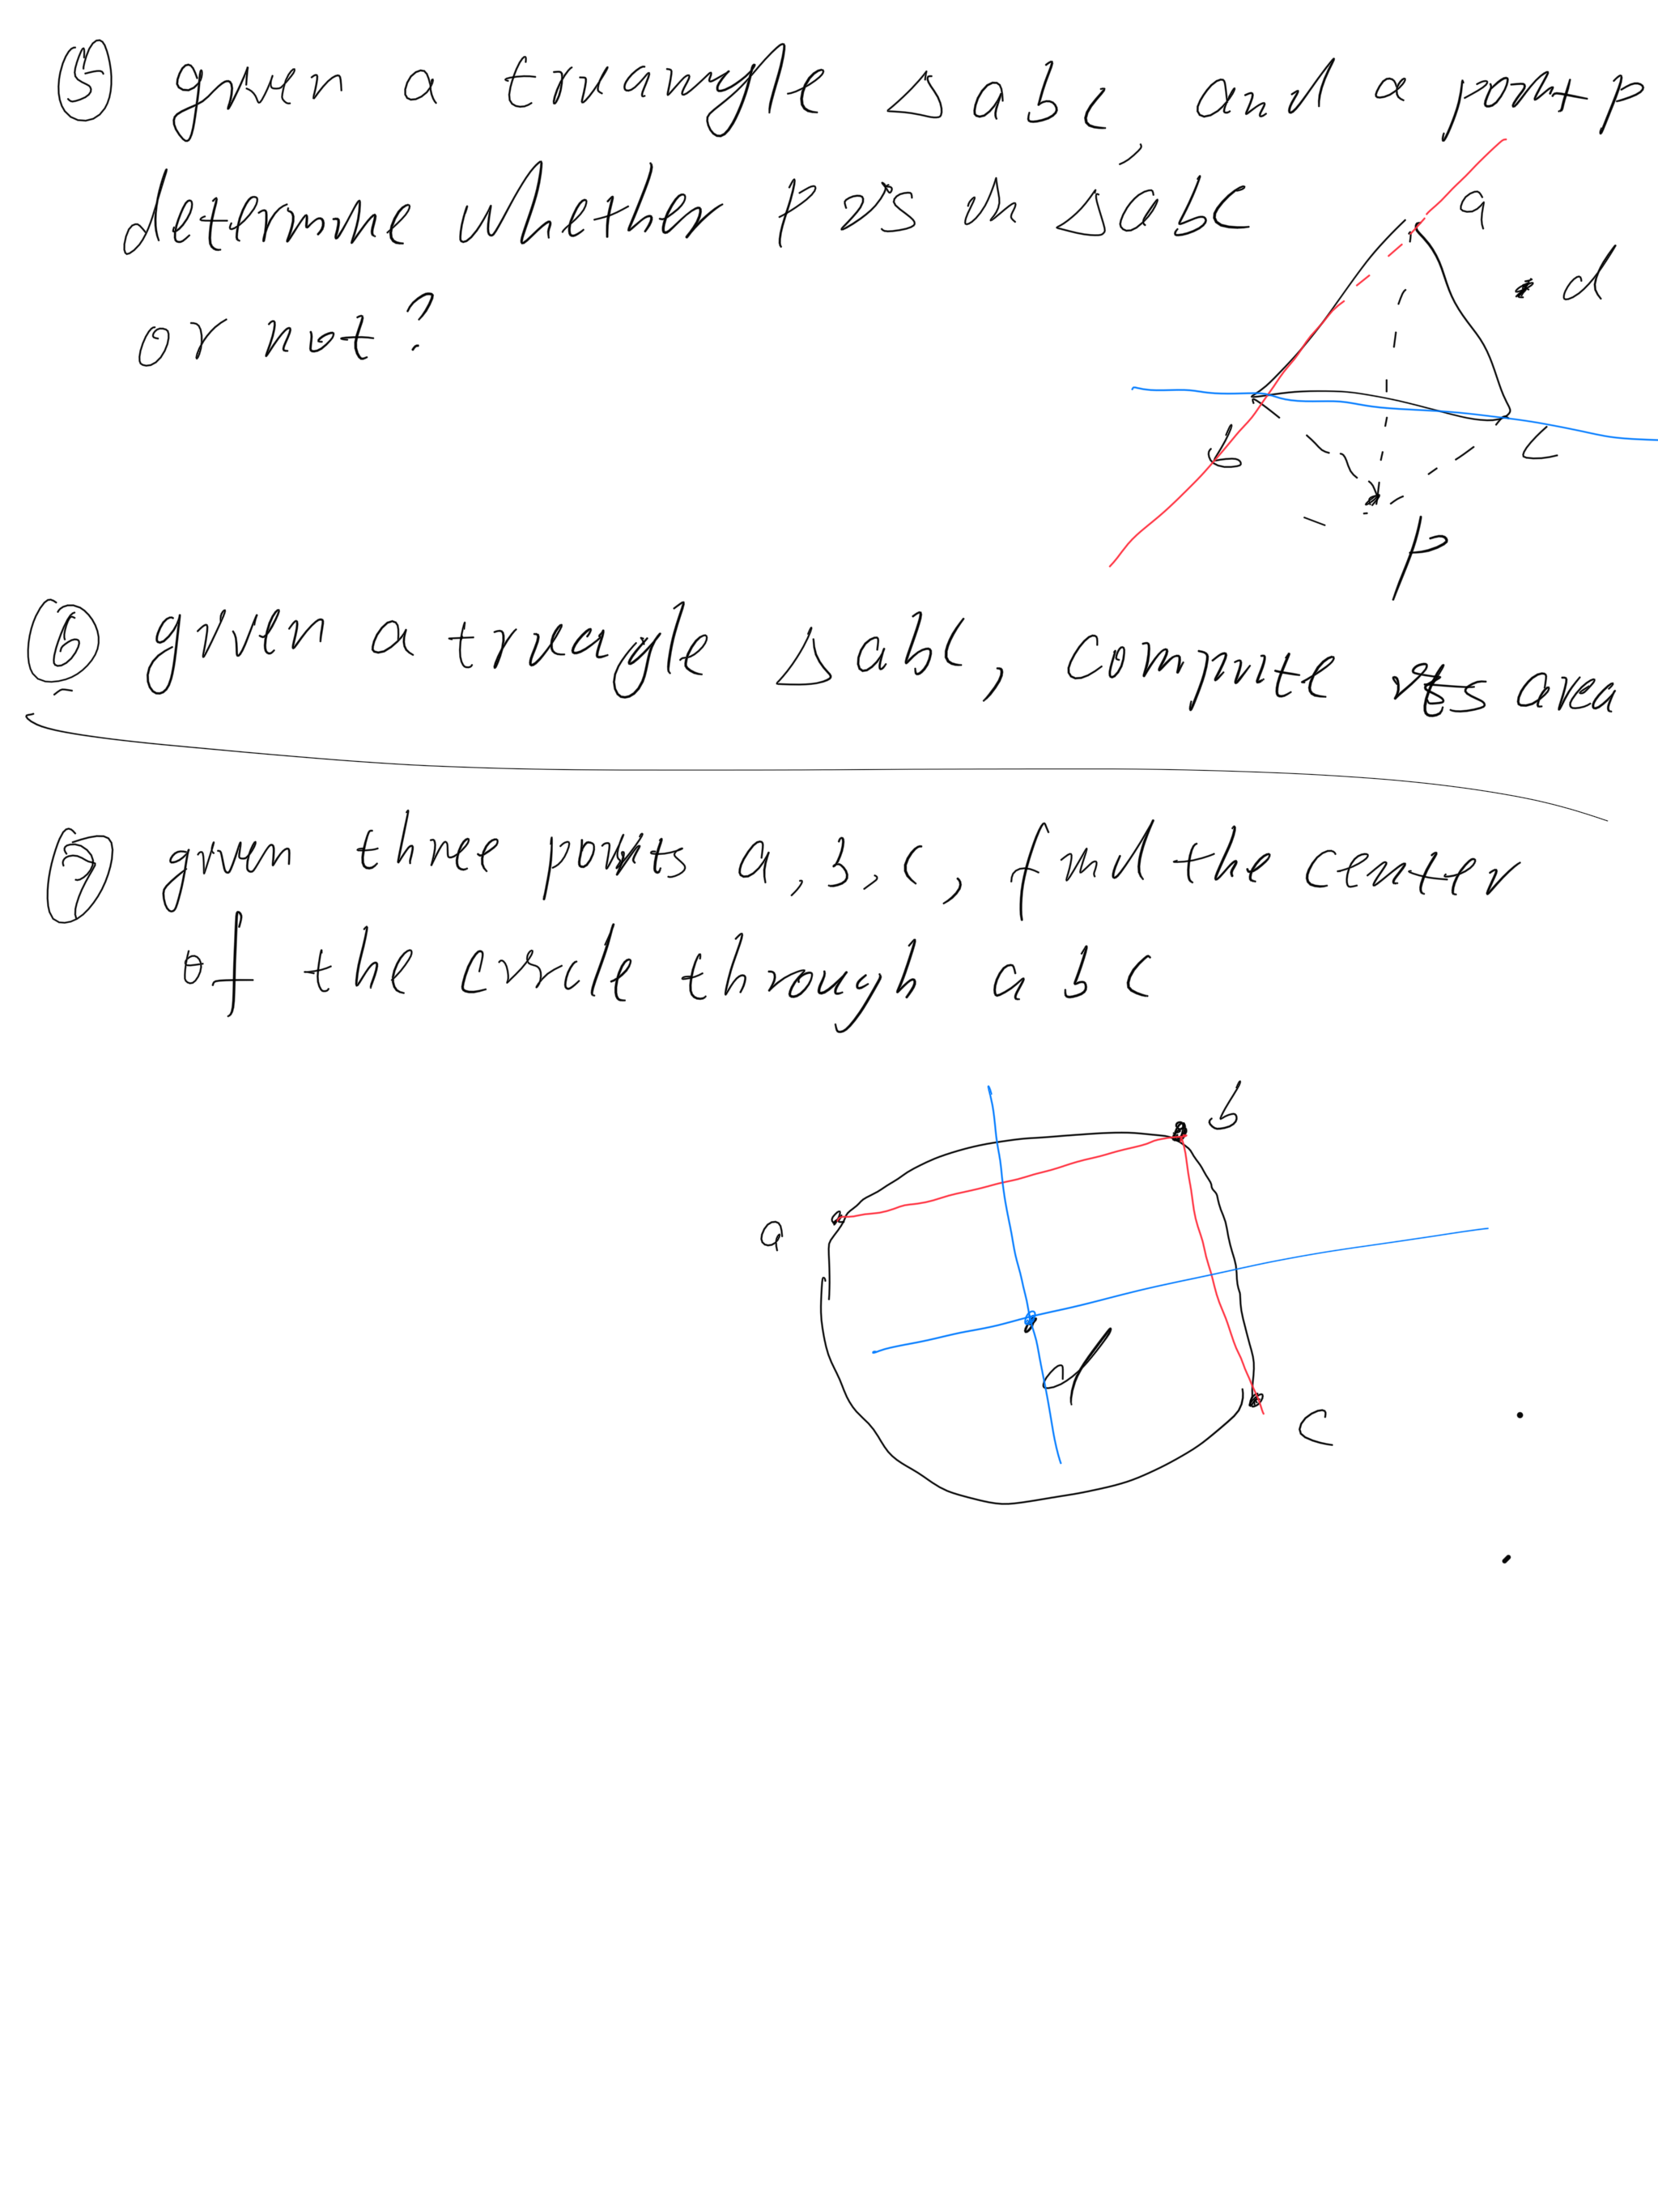 ⑤ given a triangle △abc, and a point p
determine whether p is in △abc
or not?
a
d
b
c
p
⑥ given a triangle △abc, compute its area
⑦ given three points a, b, c, find the center
of the circle through a b c
b
a
d
c